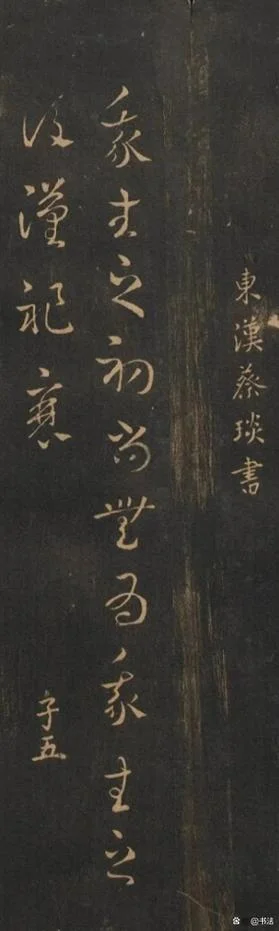 東漢蔡琰書
我生之初尚無為我生之
後漢祚衰
子五
@书法